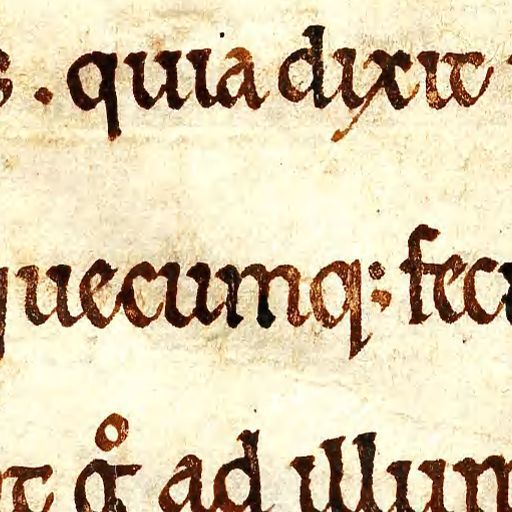 . quia dixit
quecumq: fec
g° ad illum